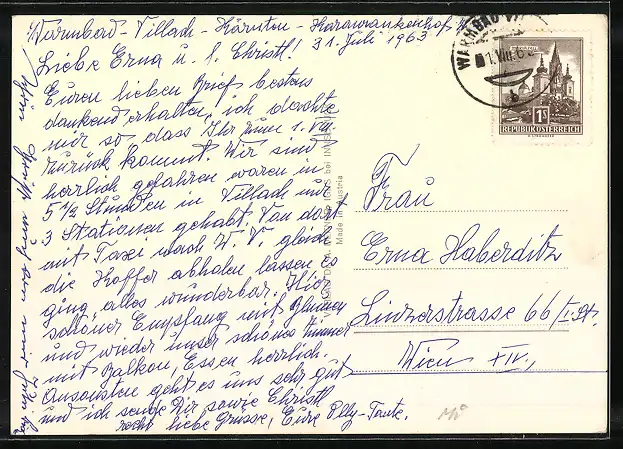 Warmbad-Villach-Kärnten-Karawankenhof
31. Juli 1963
Liebe Erna u. l. Christl!
Euren lieben Brief bestens
dankend erhalten, ich dachte
mir so, dass Ihr zum 1. VIII.
zurück kommt. Wir sind
herrlich gefahren waren in
5 1/2 Stunden in Villach nur
3 Stationen gehabt. Von dort
mit Taxi nach W. V. gleich
die Koffer abholen lassen es
ging alles wunderbar. Hier
schöner Empfang mit Blumen
und wieder unser schönes Zimmer
mit Balkon, Essen herrlich.
Ansonsten geht es uns sehr gut
und ich sende Dir sowie Christl
recht liebe Grüsse, Eure Polly-Tante.
Frau
Erna Haberditz
Linzerstrasse 66/I. St.
Wien XIV.,
WARMBAD
MARIAZELL
1S
REPUBLIK ÖSTERREICH
Made in Austria